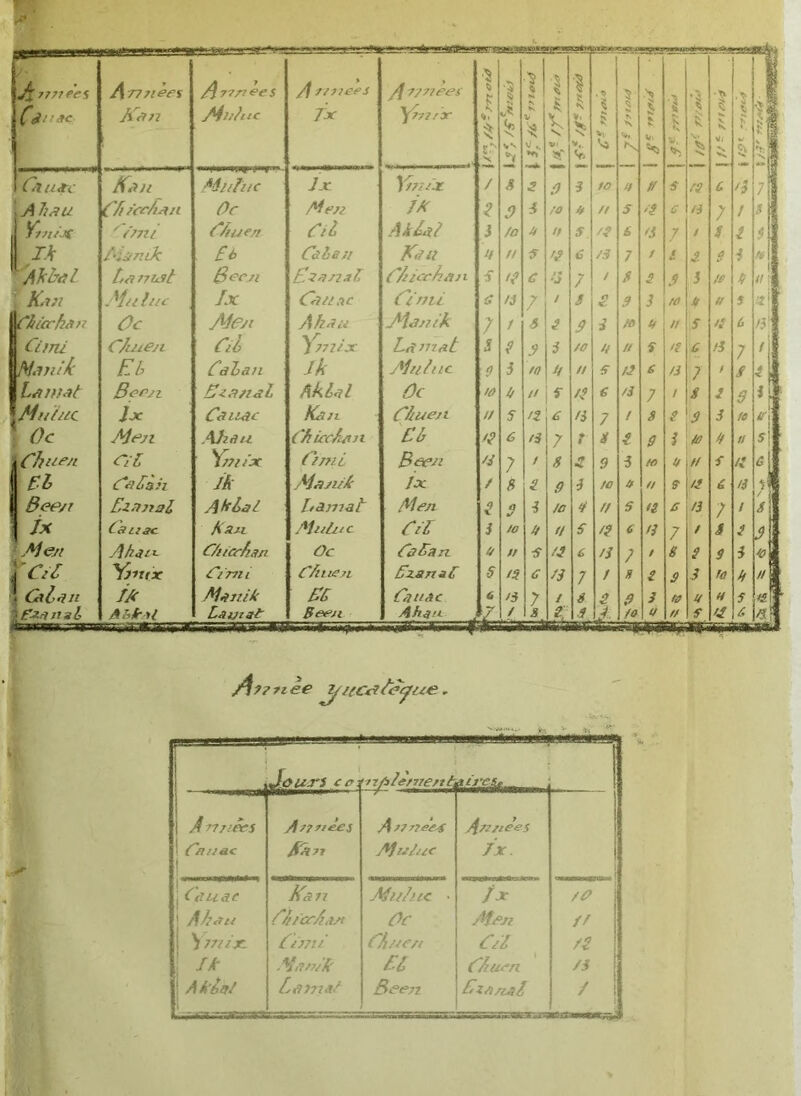 Années Années Années Années Années 1er, 14e mois 2e, 15e mois 3e, 16e mois 4e, 17e mois 5e, 18e mois 6e mois 7e mois 8e mois 9e mois 10e mois 11e mois 12e mois 13e mois
Cauac Kan Muluc Ix Ymix
Cauac Kan Muluc Ix Ymix 1 8 2 9 3 10 4 11 5 12 6 13 7
Ahau Chicchan Oc Men IK 2 9 3 10 4 11 5 12 6 13 7 1 8
Ymix Cimi Chuen Cib Akbal 3 10 4 11 5 12 6 13 7 1 8 2 9
Ik Manik Eb Caban Kan 4 11 5 12 6 13 7 1 8 2 9 3 10
Akbal Lamat Been Ezanab Chicchan 5 12 6 13 7 1 8 2 9 3 10 4 11
Kan Muluc Ix Cauac Cimi 6 13 7 1 8 2 9 3 10 4 11 5 12
Chicchan Oc Men Ahau Manik 7 1 8 2 9 3 10 4 11 5 12 6 13
Cimi Chuen Cib Ymix Lamat 8 2 9 3 10 4 11 5 12 6 13 7 1
Manik Eb Caban Ik Muluc 9 3 10 4 11 5 12 6 13 7 1 8 2
Lamat Been Ezanab Akbal Oc 10 4 11 5 12 6 13 7 1 8 2 9 3
Muluc Ix Cauac Kan Chuen 11 5 12 6 13 7 1 8 2 9 3 10 4
Oc Men Ahau Chicchan Eb 12 6 13 7 1 8 2 9 3 10 4 11 5
Chuen Cib Ymix Cimi Been 13 7 1 8 2 9 3 10 4 11 5 12 6
Eb Caban Ik Manik Ix 1 8 2 9 3 10 4 11 5 12 6 13 7
Been Ezanab Akbal Lamat Men 2 9 3 10 4 11 5 12 6 13 7 1 8
Ix Cauac Kan Muluc Cib 3 10 4 11 5 12 6 13 7 1 8 2 9
Men Ahau Chicchan Oc Caban 4 11 5 12 6 13 7 1 8 2 9 3 10
Cib Ymix Cimi Chuen Ezanab 5 12 6 13 7 1 8 2 9 3 10 4 11
Caban IK Manik Eb Cauac 6 13 7 1 8 2 9 3 10 4 11 5 12
Ezanab Akbal Lamat Been Ahau 7 1 8 2 9 3 10 4 11 5 12 6 13
Année yucatèque.
Jours complémentaires.
Années Années Années Années
Cauac Kan Muluc Ix.
Cauac Kan Muluc Ix 10
Ahau Chicchan Oc Men 11
Ymix Cimi Chuen Cib 12
Ik Manik Eb Chuen 13
Akbal Lamat Been Ezanab 1